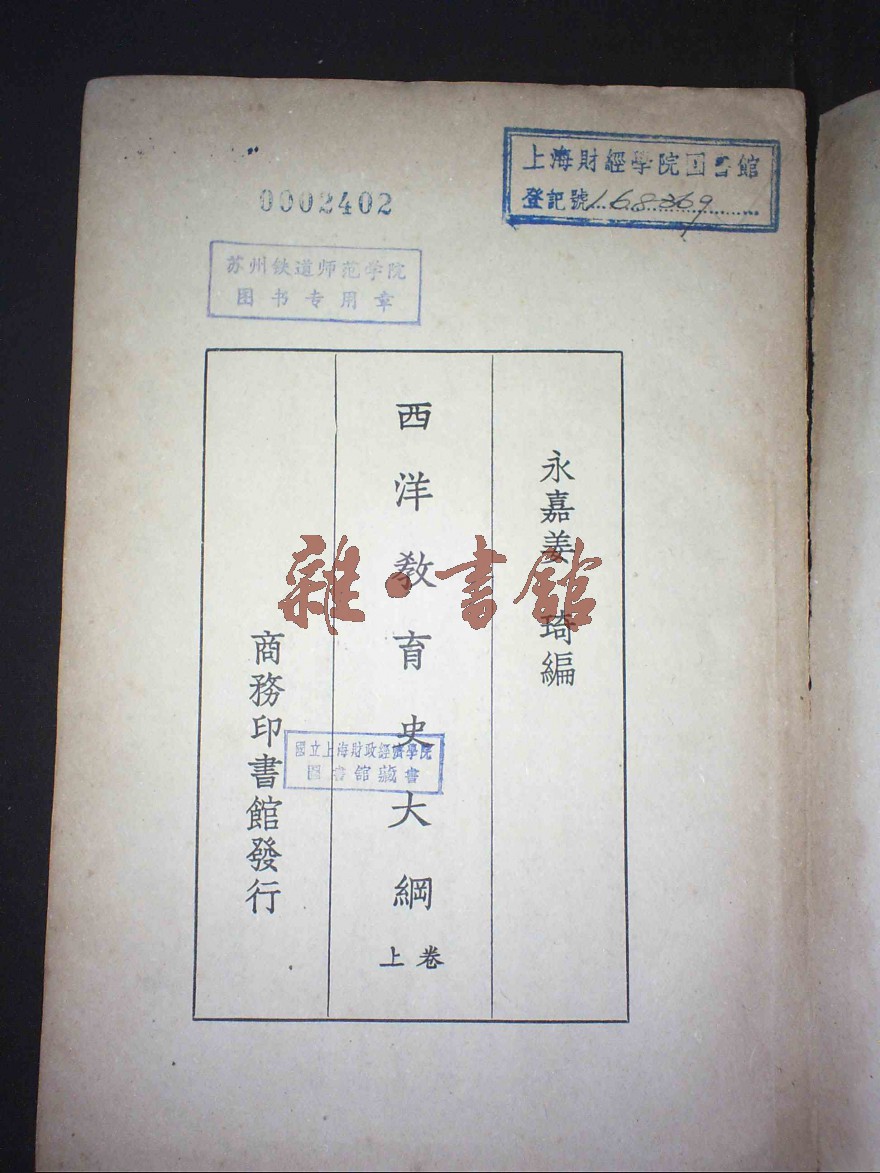 上海財經學院圖書館
登記號168369
0002402
苏州铁道师范学院
图书专用章
永嘉姜琦編
西洋教育史大綱
上卷
商務印書館發行
國立上海財政經濟學院
圖書館藏書
雜·書館